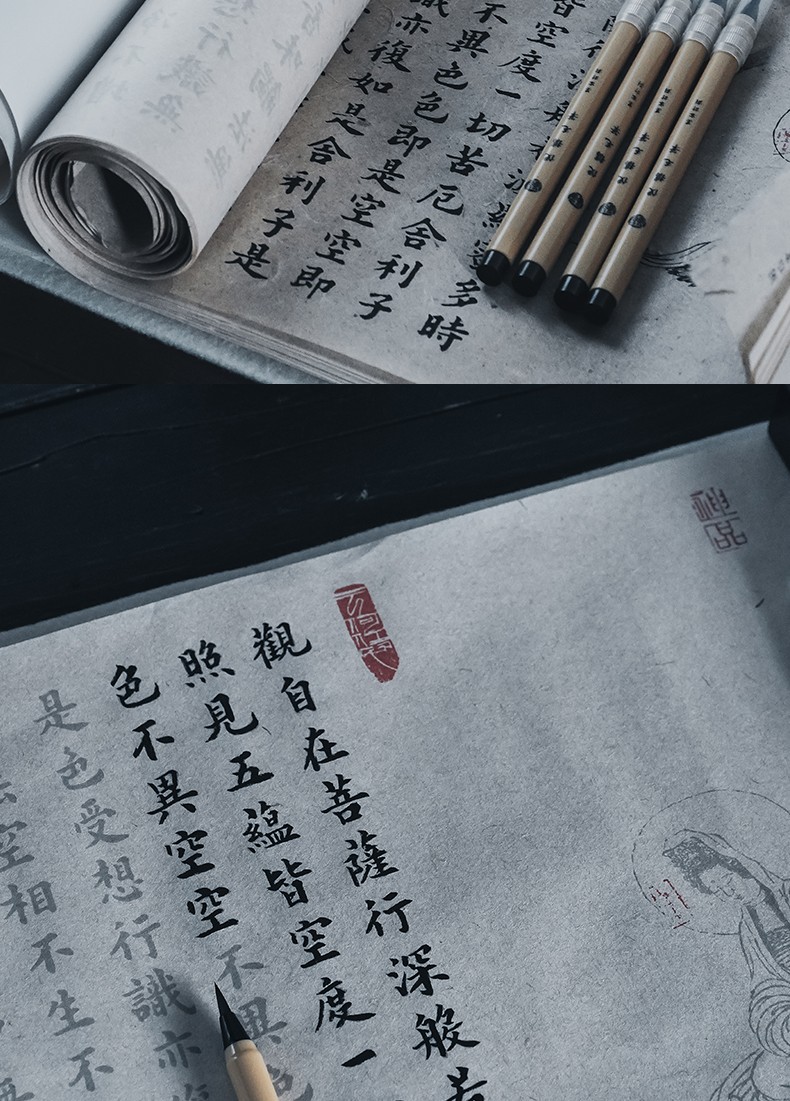 行深般多時
皆空度一切苦厄舍利子
不異色色即是空空即
識亦復如是舍利子是
行識無
觀自在菩薩行深般若
照見五蘊皆空度一
色不異空空不異色
是色受想行識亦復
空相不生不